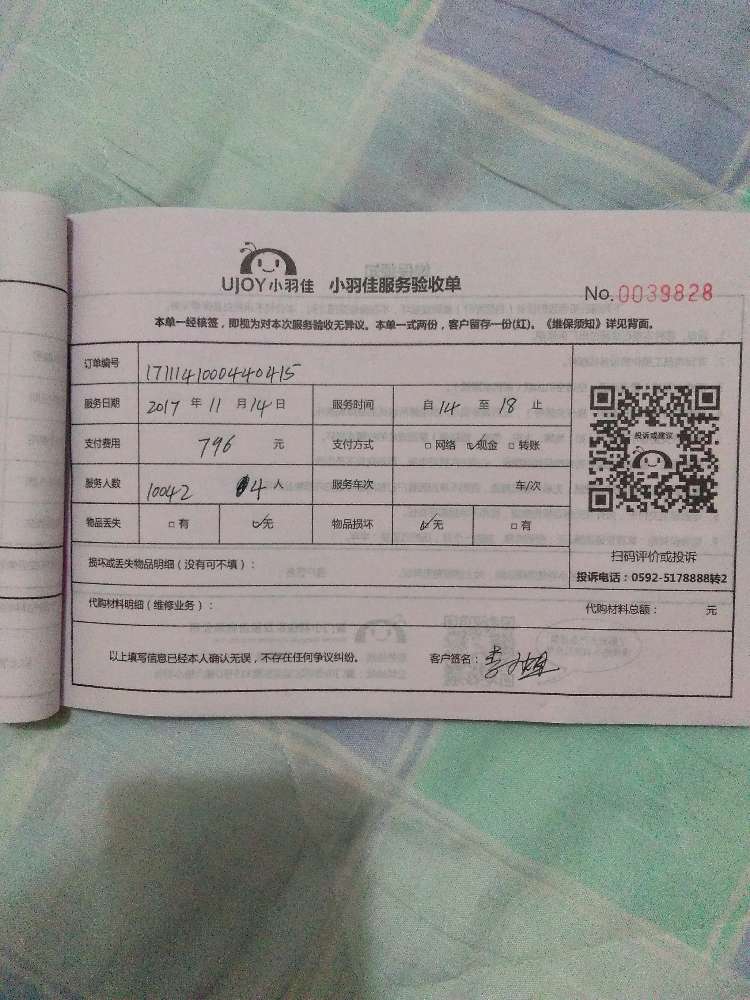 UJOY小羽佳 小羽佳服务验收单
No. 0039828
本单一经核签，即视为对本次服务验收无异议。本单一式两份，客户留存一份(红)。《维保须知》详见背面。
订单编号 1711141000440415
服务日期 2017 年 11 月 14 日 服务时间 自 14 至 18 止
支付费用 796 元 支付方式 □ 网络 ☑ 现金 □ 转账
服务人数 10042 4 人 服务车次 车/次
物品丢失 □ 有 ☑ 无 物品损坏 ☑ 无 □ 有
投诉或建议
扫码评价或投诉
投诉电话：0592-5178888转2
损坏或丢失物品明细（没有可不填）：
代购材料明细（维修业务）： 代购材料总额： 元
以上填写信息已经本人确认无误，不存在任何争议纠纷。 客户签名：李